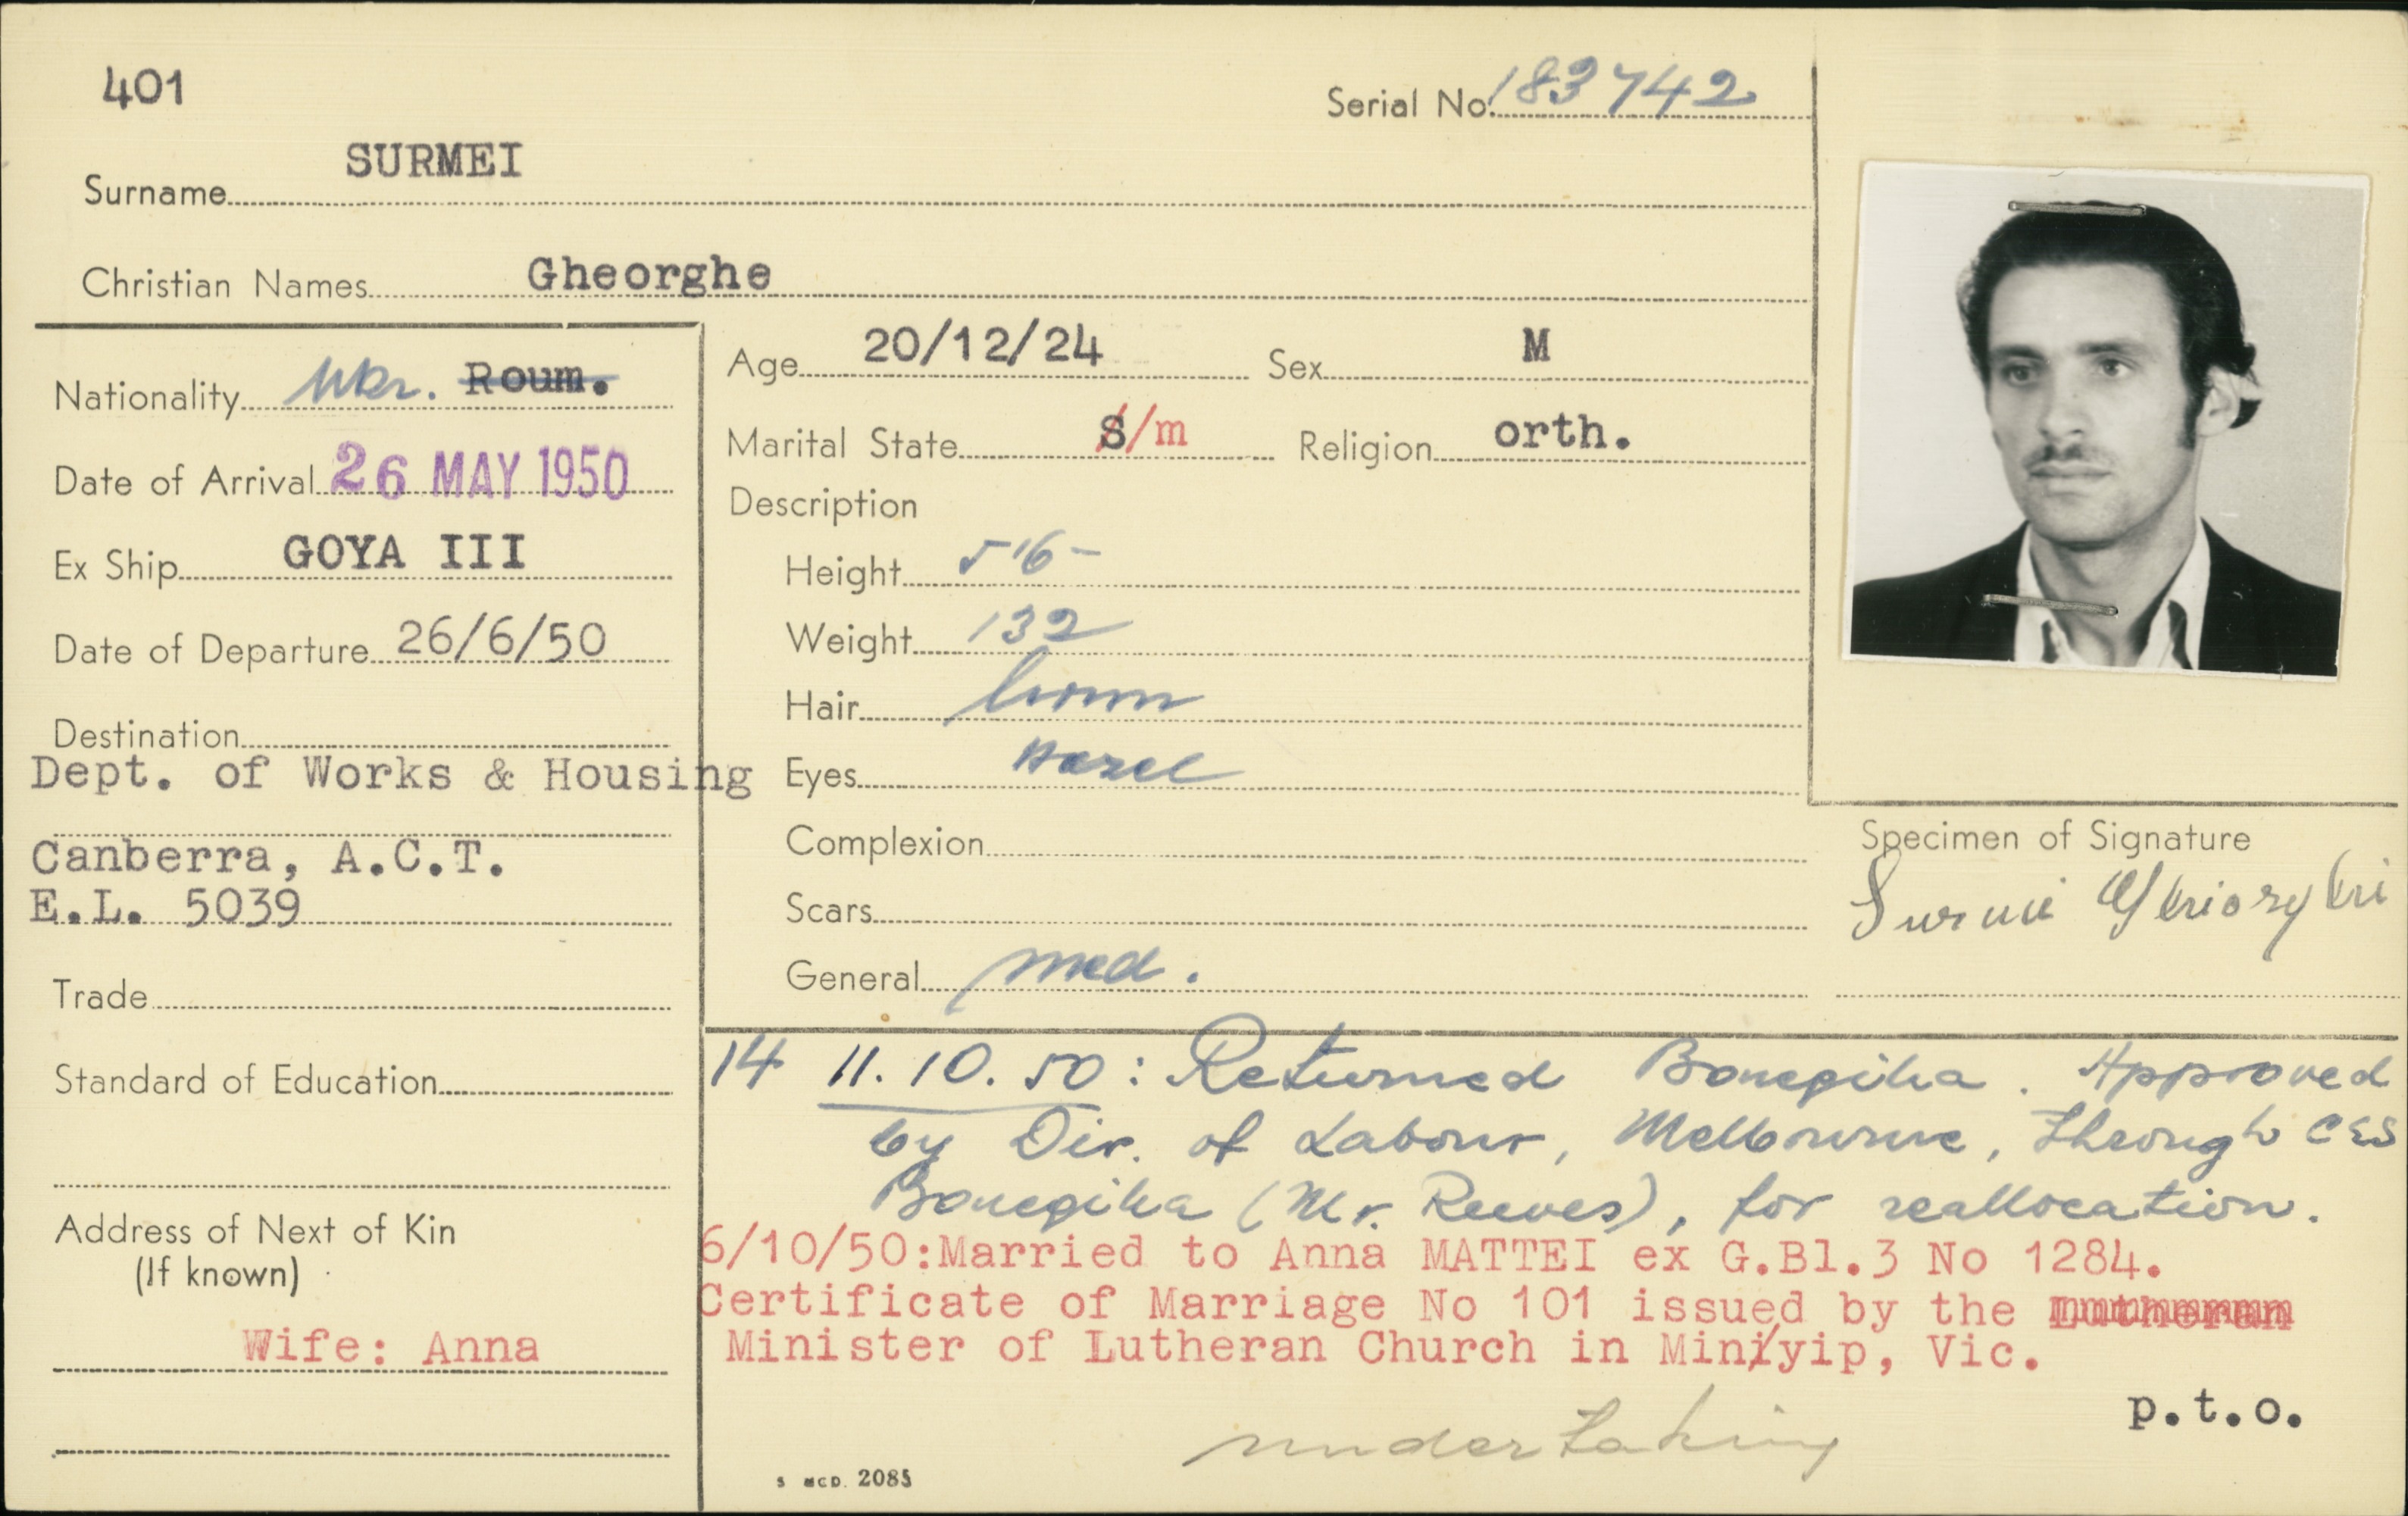 401
Serial No. 183742
Surname SURMEI
Christian Names Gheorghe
Nationality Ukr. Roum.
Date of Arrival 26 MAY 1950
Ex Ship GOYA III
Date of Departure 26/6/50
Destination
Dept. of Works & Housing
Canberra, A.C.T.
E.L. 5039
Trade
Standard of Education
Address of Next of Kin
(If known)
Wife: Anna
Age 20/12/24 Sex M
Marital State S/m Religion orth.
Description
Height 5'6-
Weight 132
Hair brown
Eyes Hazel
Complexion
Scars
General med.
Specimen of Signature
Surmei Gheorghe
14 11.10.50: Returned Bonegilla. Approved
by Dir. of Labour, Melbourne, through CES
Bonegilla (Mr. Reeves), for reallocation.
6/10/50:Married to Anna MATTEI ex G.Bl.3 No 1284.
Certificate of Marriage No 101 issued by the Lutheran
Minister of Lutheran Church in Miniyip, Vic.
p.t.o.
undertaking
2085